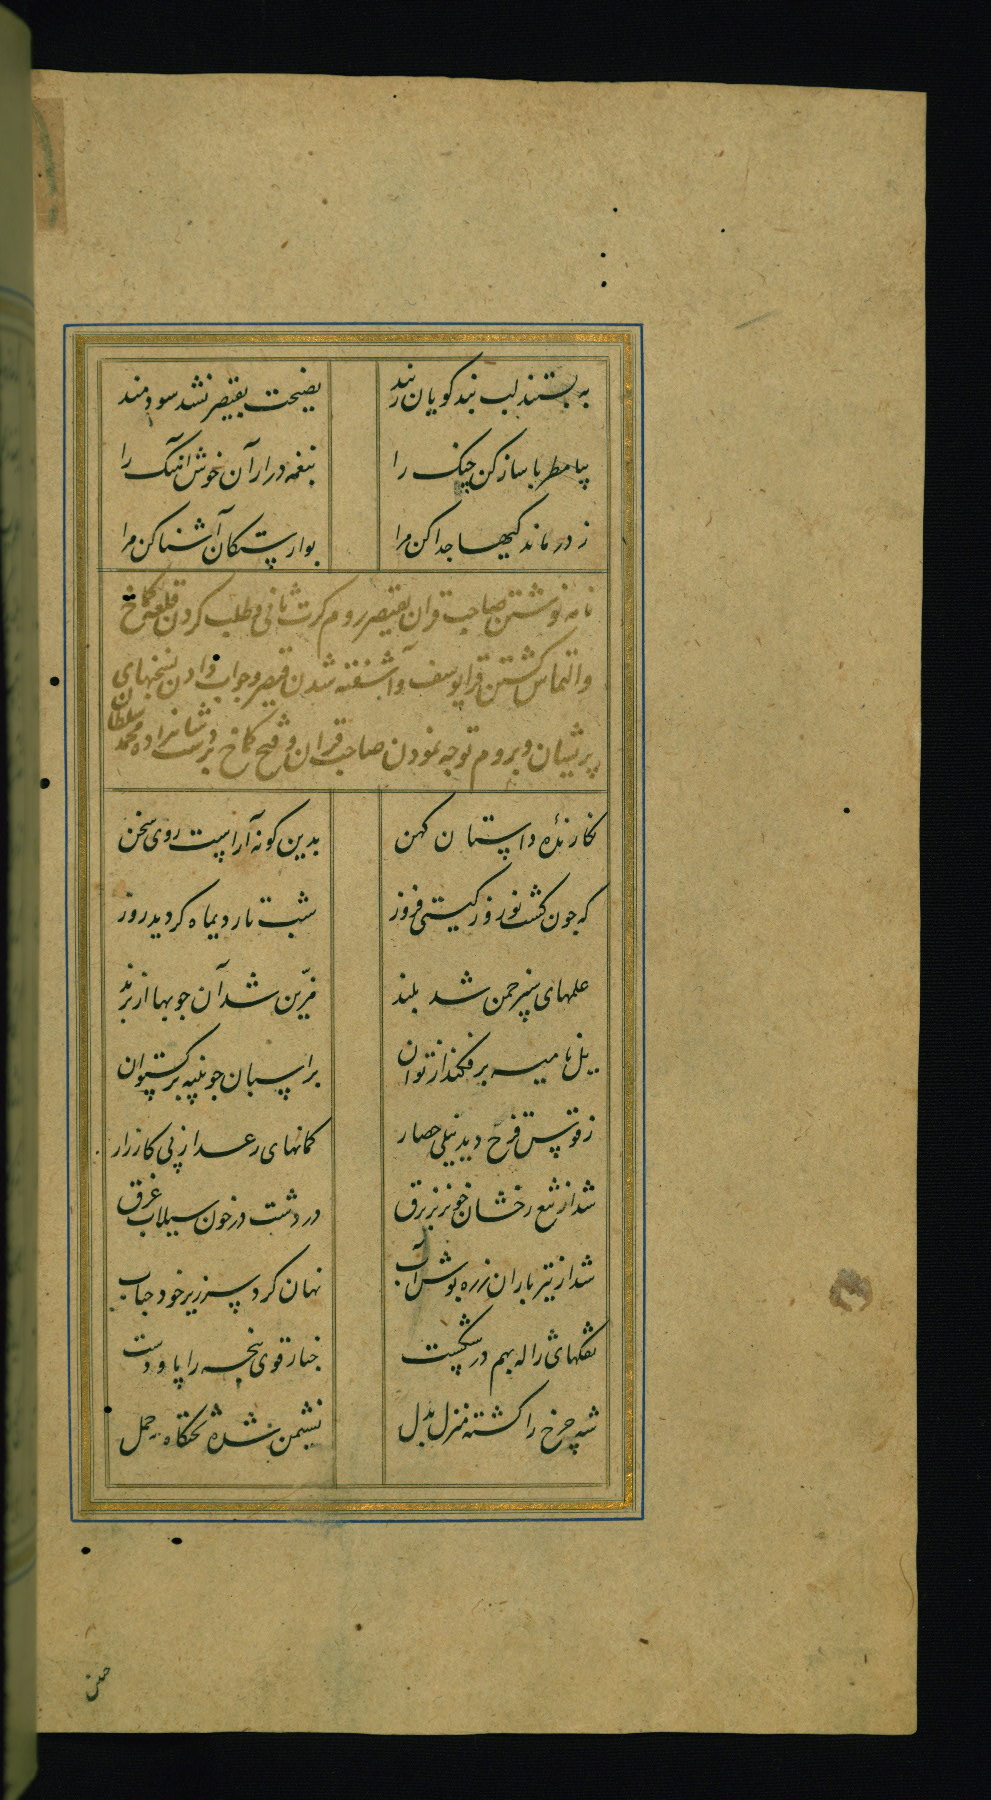 به بستند لب پند گویان رند
نصیحت بقیصر نشد سودمند
بیا مطربا ساز کن چنک را
بنغمه درار آن خوش آهنک را
ز درماندکیها جدا کن مرا
بوارستکان آشنا کن مرا
نامه نوشتن صاحب قران بقیصر روم کرت ثانی و طلب کردن قلعه کماخ
والتماس کشتن قرا یوسف و آشفته شدن قیصر و جواب دادن سخنهای
پریشان و بروم توجه نمودن صاحب قران و فتح کماخ بدست شاهزاده محمد سلطان
نکارندهٔ داستان کهن
بدین کونه آراست روی سخن
که چون کشت نوروز کیتی فروز
شب تار دیماه کردید روز
علمهای سنبر چمن شد بلند
مزین شد آن چوبها از پرند
یل نامیه برفکند از توان
بر اسبان چوبینه برکستوان
ز قوس قزح دید نیلی حصار
کمانهای رعد از پی کارزار
شد از تیغ رخشان خونریز برق
در دشت در خون سیلاب غرق
شد از تیر باران زره پوش آب
نهان کرد سر زیر خود حباب
تفکهای ژاله بهم در شکست
چنار قوی پنجه را پا و دست
شه چرخ را کشته منزل بدل
نشیمن شده تختکاه حمل
چمن